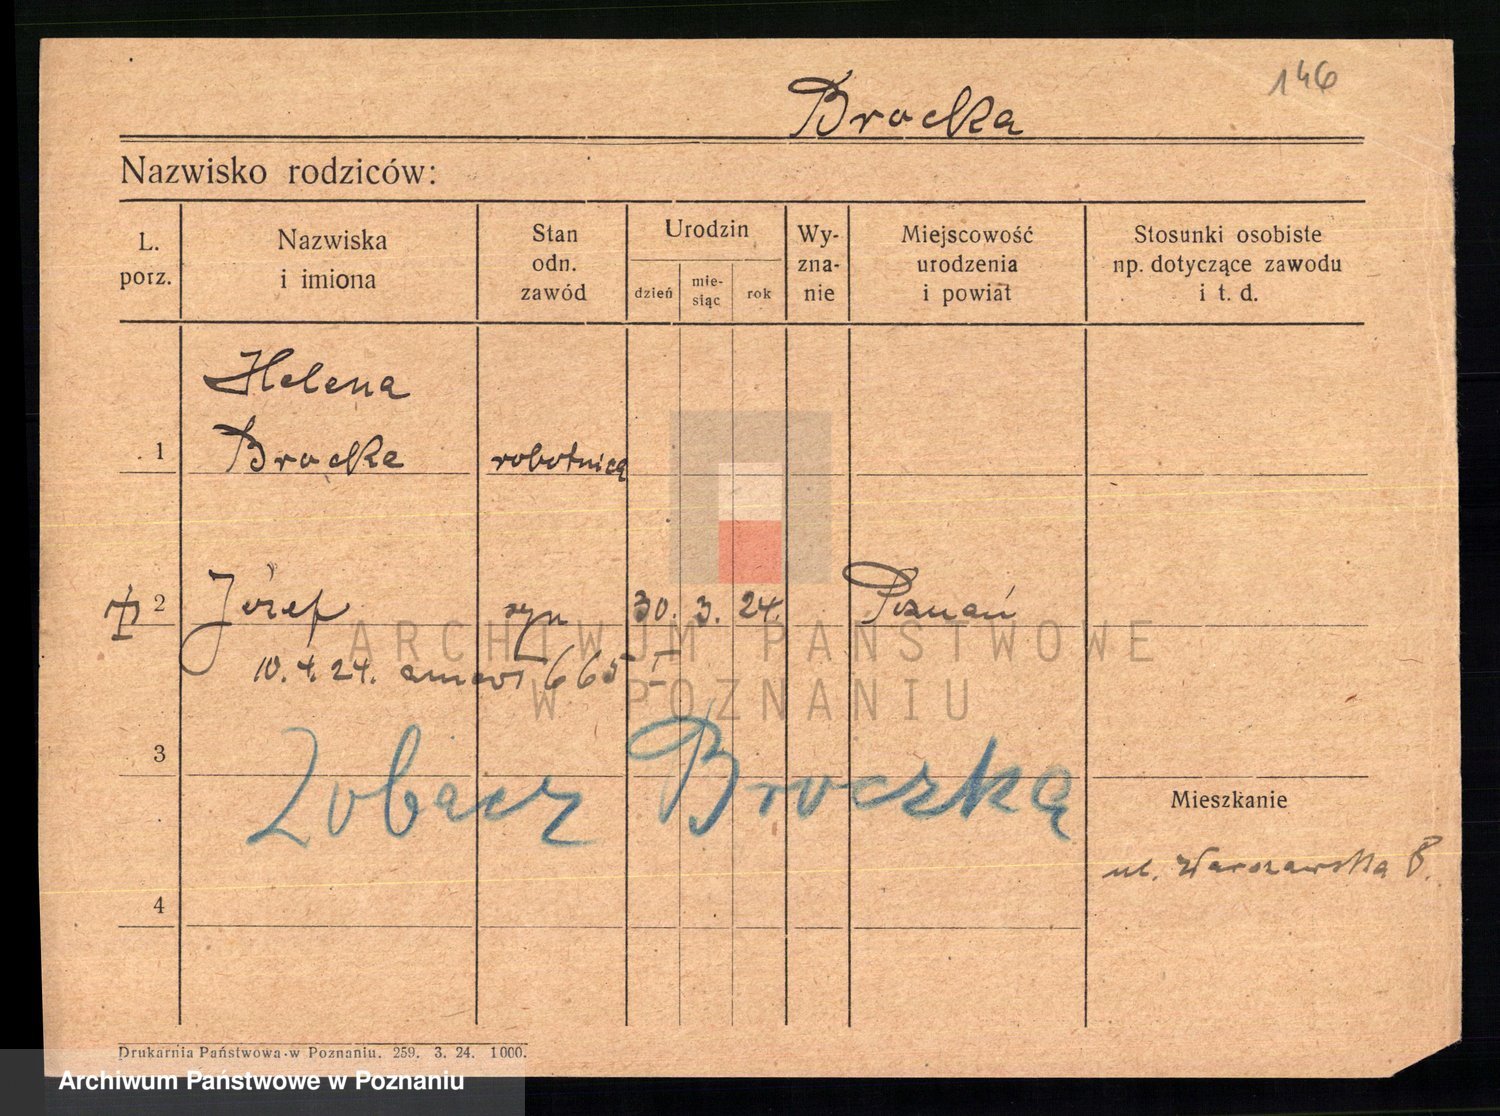 146
Brocka
Nazwisko rodziców:
L. porz.
Nazwiska i imiona
Stan odn. zawód
Urodzin
dzień
mie-siąc
rok
Wy-zna-nie
Miejscowość urodzenia i powiat
Stosunki osobiste np. dotyczące zawodu i t. d.
Helena
1 Brocka robotnica
2 Józef syn 30. 3. 24. Poznań
10. 4. 24. 665 I
ARCHIWUM PAŃSTWOWE
W POZNANIU
3
Zobacz Broczką
Mieszkanie
ul. Warszawska 8.
4
Drukarnia Państwowa w Poznaniu. 259. 3. 24. 1000.
Archiwum Państwowe w Poznaniu